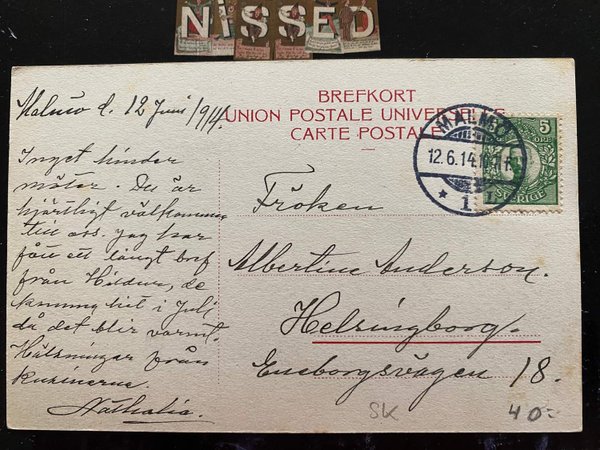 NISSED
BREFKORT
UNION POSTALE UNIVERSELLE
CARTE POSTALE
MALMÖ
12.6.14
* 1
5
ÖRE
SVERIGE
Malmö d. 12 Juni 1914.
Inget hinder
möter. Du är
hjärtligt välkommen
till oss. Jag har
fått ett långt bref
från Hildur, de
komma hit i Juli
då det blir varmt.
Hälsningar från
kusinerna.
Nathalia.
Fröken
Albertine Anderson.
Helsingborg.
Eneborgsvägen 18.
SK
40:-